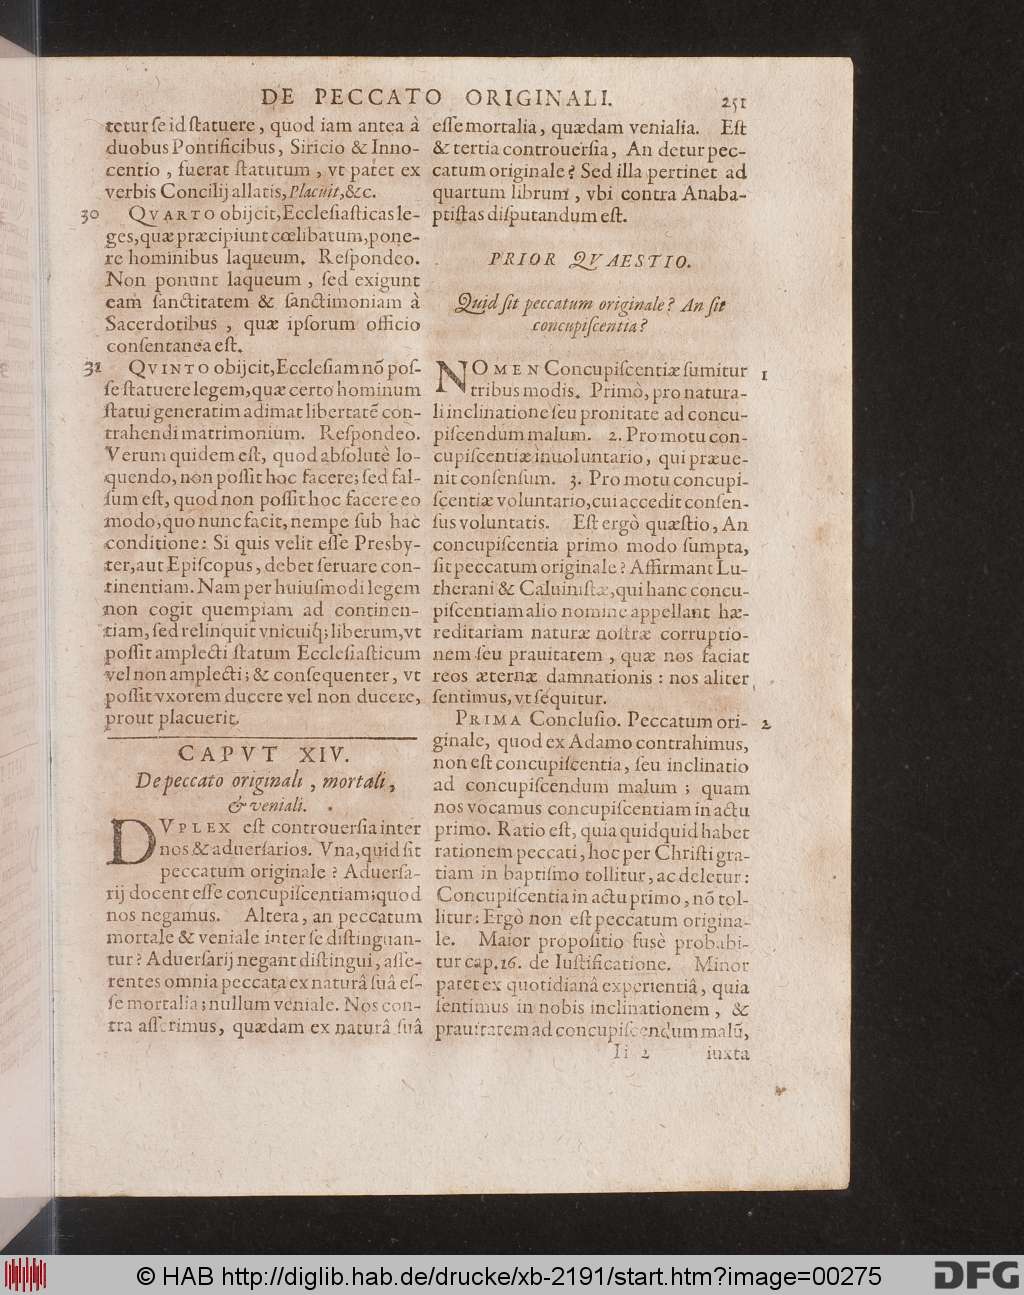 DE PECCATO ORIGINALI. 251
tetur ſe id ſtatuere, quod iam antea à
duobus Pontificibus, Siricio & Inno-
centio, fuerat ſtatutum, vt patet ex
verbis Concilij allatis, Placuit, &c.
30 QVARTO obijcit, Eccleſiaſticas le-
ges, quæ præcipiunt cœlibatum, pone-
re hominibus laqueum. Reſpondeo.
Non ponunt laqueum, ſed exigunt
eam ſanctitatem & ſanctimoniam à
Sacerdotibus, quæ ipſorum officio
conſentanea eſt.
31 QVINTO obijcit, Eccleſiam nõ poſ-
ſe ſtatuere legem, quæ certo hominum
ſtatui generatim adimat libertatẽ con-
trahendi matrimonium. Reſpondeo.
Verum quidem eſt, quod abſolutè lo-
quendo, non poſſit hoc facere; ſed fal-
ſum eſt, quod non poſſit hoc facere eo
modo, quo nunc facit, nempe ſub hac
conditione: Si quis velit eſſe Presby-
ter, aut Epiſcopus, debet ſeruare con-
tinentiam. Nam per huiuſmodi legem
non cogit quempiam ad continen-
tiam, ſed relinquit vnicuiq́; liberum, vt
poſſit amplecti ſtatum Eccleſiaſticum
vel non amplecti; & conſequenter, vt
poſſit vxorem ducere vel non ducere,
prout placuerit.
CAPVT XIV.
De peccato originali, mortali,
& veniali.
DVPLEX eſt controuerſia inter
nos & aduerſarios. Vna, quid ſit
peccatum originale? Aduerſa-
rij docent eſſe concupiſcentiam; quod
nos negamus. Altera, an peccatum
mortale & veniale inter ſe diſtinguan-
tur? Aduerſarij negant diſtingui, aſſe-
rentes omnia peccata ex naturâ ſuâ eſ-
ſe mortalia; nullum veniale. Nos con-
tra aſſerimus, quædam ex naturâ ſuâ
eſſe mortalia, quædam venialia. Eſt
& tertia controuerſia, An detur pec-
catum originale? Sed illa pertinet ad
quartum librum, vbi contra Anaba-
ptiſtas diſputandum eſt.
PRIOR QVAESTIO.
Quid ſit peccatum originale? An ſit
concupiſcentia?
NOMEN Concupiſcentiæ ſumitur 1
tribus modis. Primò, pro natura-
li inclinatione ſeu pronitate ad concu-
piſcendum malum. 2. Pro motu con-
cupiſcentiæ inuoluntario, qui præue-
nit conſenſum. 3. Pro motu concupi-
ſcentiæ voluntario, cui accedit conſen-
ſus voluntatis. Eſt ergò quæſtio, An
concupiſcentia primo modo ſumpta,
ſit peccatum originale? Affirmant Lu-
therani & Caluiniſtæ, qui hanc concu-
piſcentiam alio nomine appellant hæ-
reditariam naturæ noſtræ corruptio-
nem ſeu prauitatem, quæ nos faciat
reos æternæ damnationis: nos aliter
ſentimus, vt ſequitur.
PRIMA Concluſio. Peccatum ori- 2
ginale, quod ex Adamo contrahimus,
non eſt concupiſcentia, ſeu inclinatio
ad concupiſcendum malum; quam
nos vocamus concupiſcentiam in actu
primo. Ratio eſt, quia quidquid habet
rationem peccati, hoc per Chriſti gra-
tiam in baptiſmo tollitur, ac deletur:
Concupiſcentia in actu primo, nõ tol-
litur: Ergò non eſt peccatum origina-
le. Maior propoſitio fusè probabi-
tur cap. 16. de Iuſtificatione. Minor
patet ex quotidianâ experientiâ, quia
ſentimus in nobis inclinationem, &
prauitatem ad concupiſcendum malũ,
Ii 2 iuxta
© HAB http://diglib.hab.de/drucke/xb-2191/start.htm?image=00275
DFG